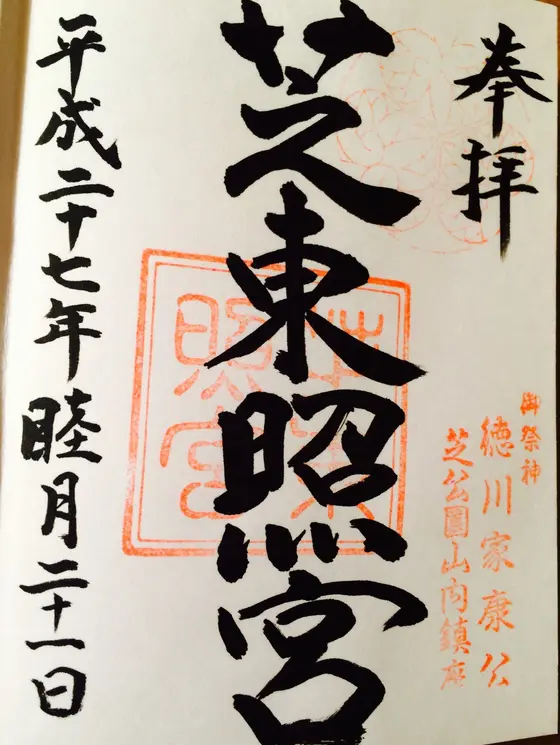 奉拝
御祭神
徳川家康公
芝公園山内鎮座
芝東照宮
芝東照宮
平成二十七年睦月二十一日